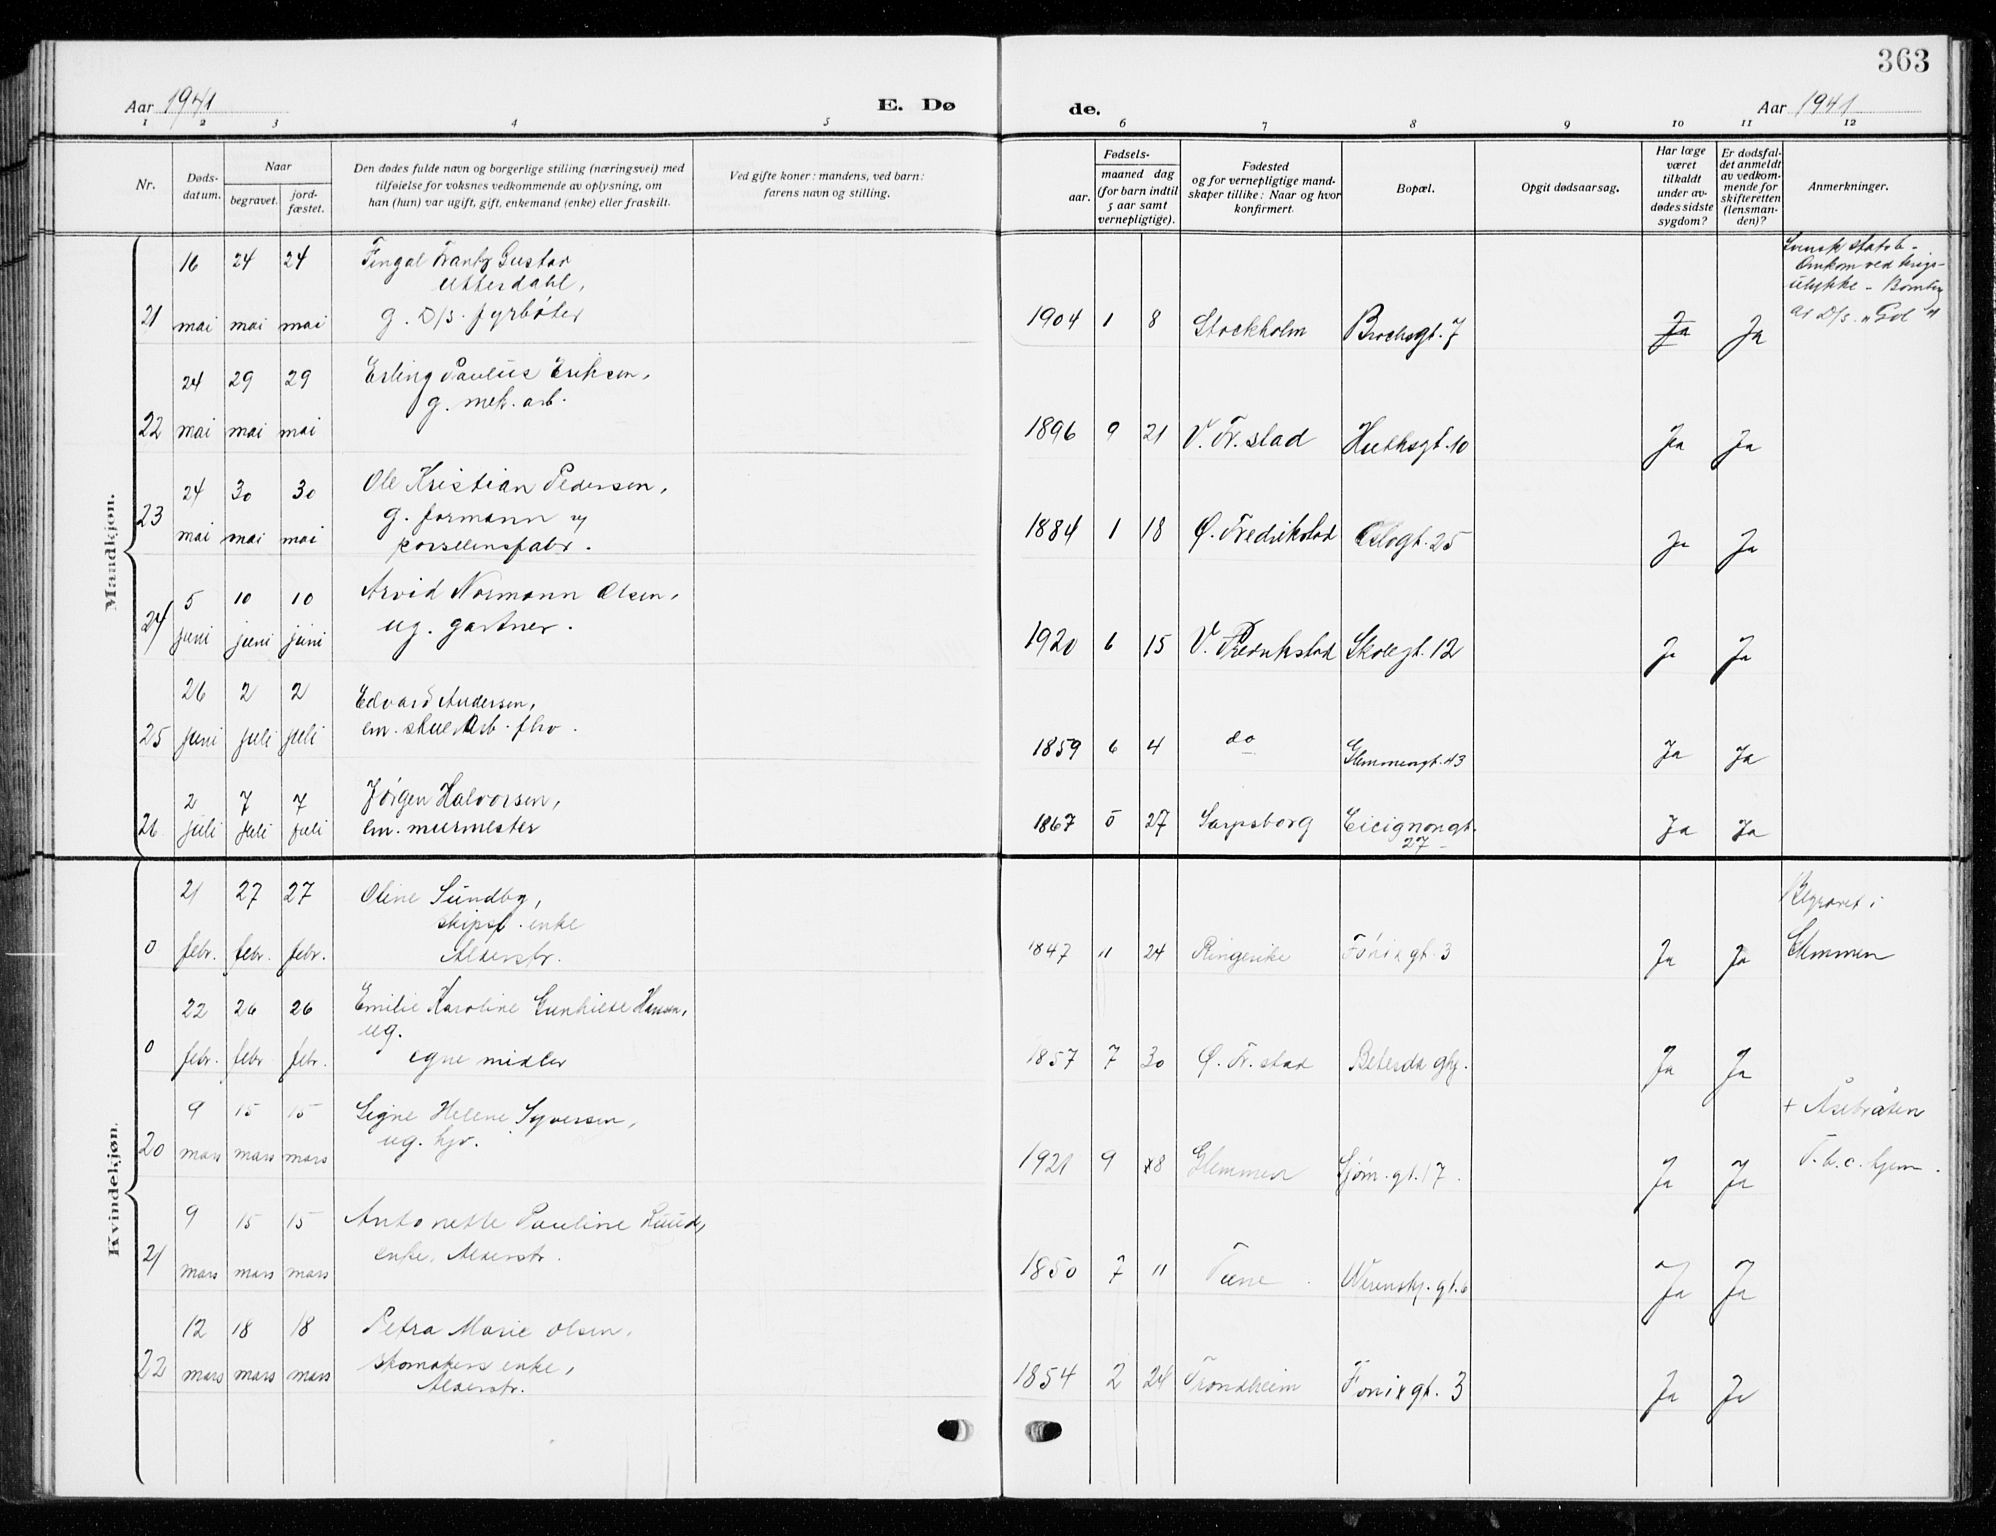 363
Aar 1941
E. Dø
de.
Aar 1941
1 2 3 4 5 6 7 8 9 10 11 12
Nr.
Døds-
datum.
Naar
begravet.
jord-
fæstet.
Den dødes fulde navn og borgerlige stilling (næringsvei) med
tilføielse for voksnes vedkommende av oplysning, om
han (hun) var ugift, gift, enkemand (enke) eller fraskilt.
Ved gifte koner: mandens, ved barn:
farens navn og stilling.
Fødsels-
aar.
maaned dag
(for barn indtil
5 aar samt
vernepligtige).
Fødested
og for vernepligtige mand-
skaper tillike: Naar og hvor
konfirmert.
Bopæl.
Opgit dødsaarsag.
Har læge
været
tilkaldt
under av-
dødes sidste
sygdom?
Er dødsfal-
det anmeldt
av vedkom-
mende for
skifteretten
(lensman-
den)?
Anmerkninger.
Mandkjøn.
16 24 24 Fingal Frantz Gustav
Utterdahl,
21 mai mai mai g. D/S. fyrbøter
1904 1 8 Stockholm Brochsgt. 7 Ja Ja
Svensk statsb-
Omkom ved krigs-
ulykke - Bombing
av D/s.
24 29 29 Erling Paulus Eriksen,
g. mek. arb.
22 mai mai mai
1896 9 21 V. Fr.stad Huthsgt. 10 Ja Ja
24 30 30 Ole Kristian Pedersen,
23 mai mai mai g. formann v/
porselensfabr.
1884 1 18 Ø. Fredrikstad Oslogt. 25 Ja Ja
5 10 10 Arvid Normann Olsen,
24 juni juni juni ug. gartner.
1920 6 15 V. Fredrikstad Skolegt. 12 Ja Ja
26 2 2 Edvard Andersen,
25 juni juli juli em.
1859 6 4 do Glemmengt. 43 Ja Ja
2 7 7 Jørgen Halvorsen,
26 juli juli juli em. murmester
1867 5 27 Sarpsborg Cicignongt.
27
Ja Ja
Kvindekjøn.
21 27 27 Oline Sundby,
skipsf. enke
0 febr. febr. febr. Alderstr.
1847 11 24 Ringerike Fønixgt. 3 Ja Ja
Begravet i
Glemmen
22 26 26 Emilie Karoline Gunhilde Hansen,
ug.
0 febr. febr febr. egne midler
1857 7 30 Ø. Fr.stad Betesda Ja Ja
9 15 15 Signe Helene Syversen,
20 mars mars mars ug. hjv.
1921 9 8 Glemmen Sjøm.gt. 17. Ja Ja
+ Åsebråten
T.b.c. hjem.
9 15 15 Antonette Pauline Ruud,
21 mars mars mars enke, Alderstr.
1850 7 11 Tune Werenskj.gt. 6 Ja Ja
12 18 18 Petra Marie Olsen,
22 mars mars mars skomakers enke,
Alderstr.
1854 2 24 Trondheim Fønixgt. 3 Ja Ja